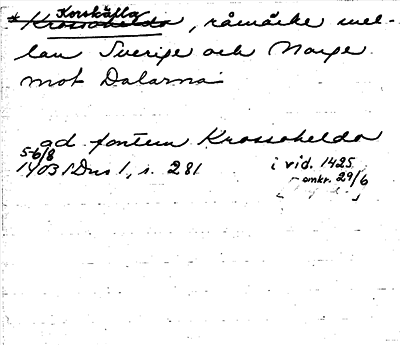 Korskälla
* Krossokelda, råmärke mel-
lan Sverige och Norge
mot Dalarna
ad fontem Krossokelda
5-6/8
1403 SDns 1, s. 281
i vid. 1425
omkr. 29/6